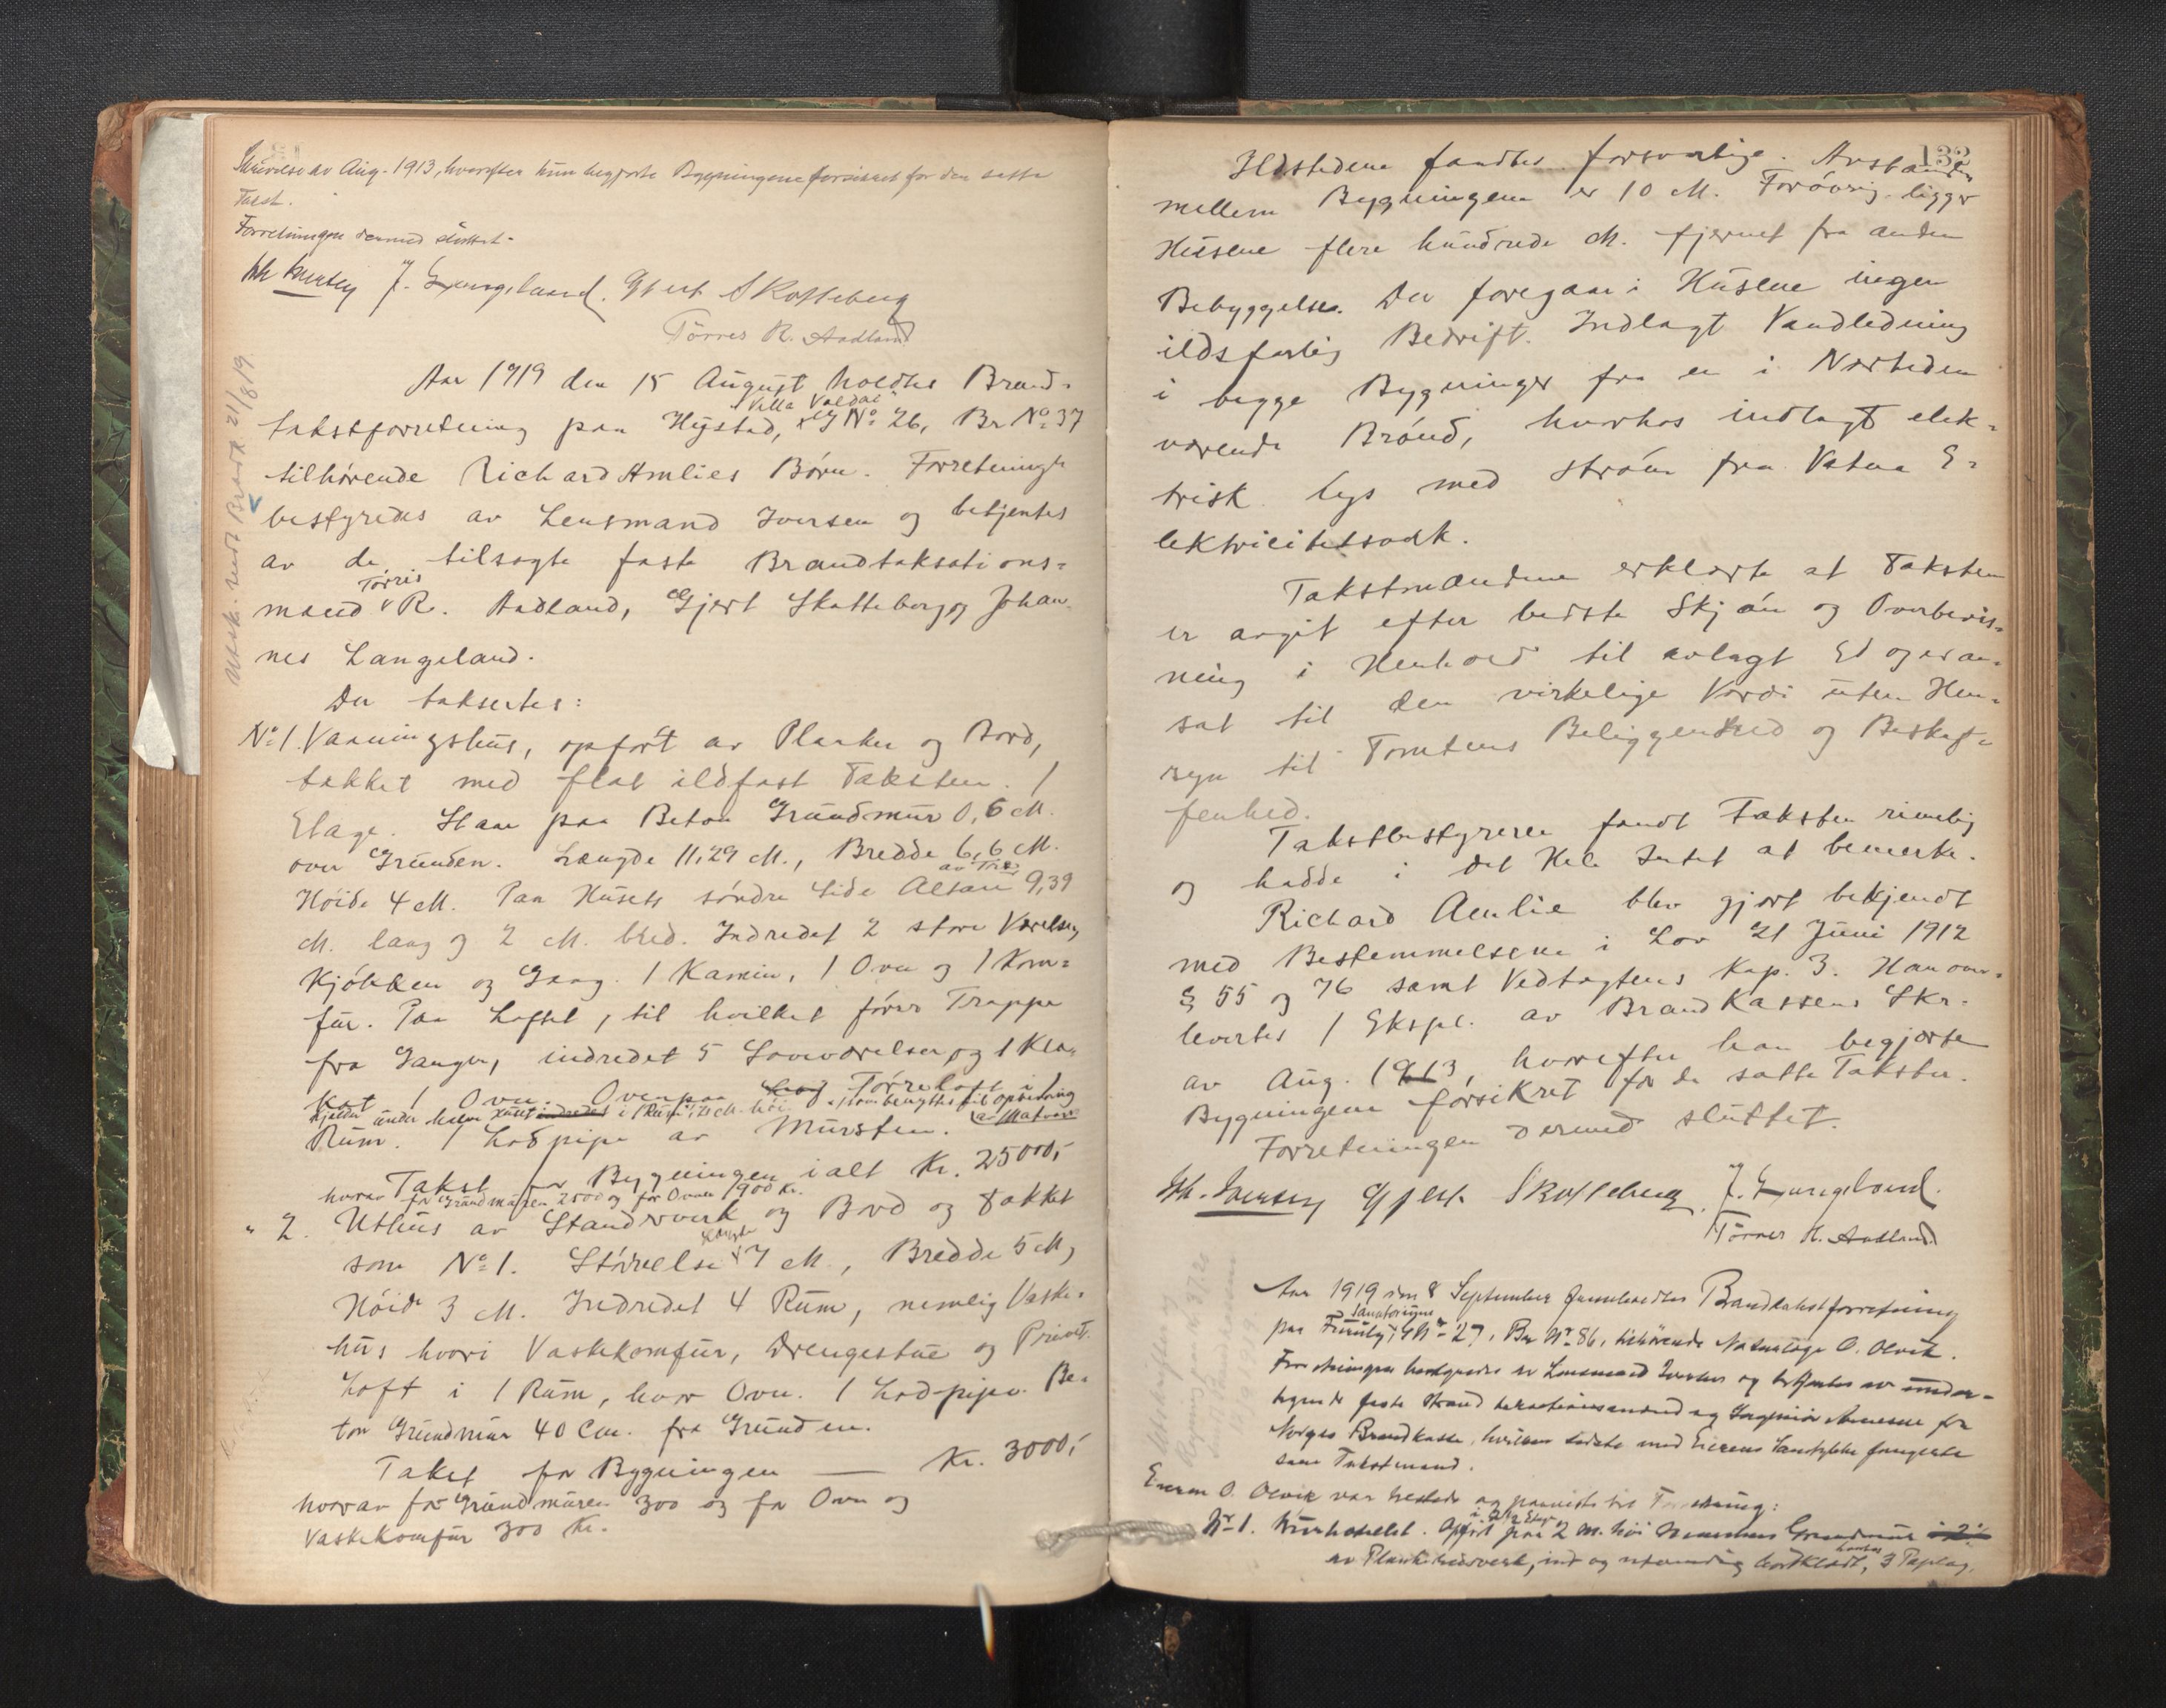 Skrivelse av Aug. 1913, hvorefter hun begjærte Bygningene forsikret for den satte
Takst.
Forretningen dermed sluttet.
J. Langeland. Gjert Skotteberg
Tørres R. Aadland
Aar 1919 den 15 August holdtes Brand-
Villa Voldal
takstforretning paa Hystad, G No 26, Br No 37
tilhørende Richard Amlies Børn. Forretningen
bestyredes av Lensmand Iversen og betjentes
av de tilsagte faste Brandtaksations-
Tørris
mænd R. Aadland, Gjert Skotteberg og Johan-
nes Langeland.
Der takseertes:
No 1. Vaaningshus, opført av Planker og Bord,
tækket med flat ildfast Taksten. 1
Etage. Staar paa Beton Grundmur 0,6 M.
over Grunden. Længde 11,29 M., Bredde 6,6 M.
av Træ
Høide 4 M. Paa Husets søndre Side Altan 9,39
M. lang og 2 M. bred. Indredet 2 store Værelser,
Kjøkken og Gang. 1 Kamin, 1 Ovn og 1 Kom-
fur. Paa Loftet, til hvilket fører Trappe
fra Gangen, indredet 5 Soveværelser og 1 Klo-
set 1 Ovn. Ovenpaa Tørreloft i
Kjelder under halve Huset indredet i 1 Rum, 2 M. høi, som benyttes til opbevaring av Matvarer
Rum. 1 Lodpipe av Mursten.
Takst for Bygningen ialt Kr. 25000,-
hvorav for Grundmuren 2500 og for Ovner 900 Kr.
" 2. Uthus av Standverk og Bord og tækket
Længde
som No 1. Størrelse 7 M., Bredde 5 M,
Høide 3 M. Indredet 4 Rum, nemlig Vaske-
hus hvori Vaskekomfur, Drengestue og Privet.
Loft i 1 Rum, hvor Ovn. 1 Lodpipe. Be-
ton Grundmur 40 Cm. fra Grunden.
Takst for Bygningen — Kr. 3000,-
hvorav for Grundmuren 300 og for Ovn og
Vaskekomfur 300 Kr.
Utsk. sendt Brandk. 21/8 19.
132
Ildstedene fandtes forsvarlige. Avstanden
mellem Bygningene er 10 M. Forøvrig ligger
Husene flere hundrede M. fjernet fra anden
Bebyggelse. Der foregaar i Husene ingen
ildsfarlig Bedrift. Indlagt Vandledning
i begge Bygninger fra en i Nærheden
værende Brønd, hvorhos indlagt elek-
trisk lys med strøm fra Vatna E-
lektricitetsverk.
Takstmændene erklærte at Taksten
er avgit efter bedste Skjøn og Overbevis-
ning i Henhold til avlagt Ed og er an-
sat til den virkelige Værdi uten Hen-
syn til Tomtens Beliggenhed og Beskaf-
fenhed.
Takstbestyreren fandt Taksten rimelig
og hadde i det Hele Intet at bemerke.
Richard Amlie blev gjort bekjendt
med Bestemmelsene i Lov 21 Juni 1912
§ 55 og 76 samt Vedtægtens Kap. 3. Han over-
levertes 1 Ekspl. av BrandKassens Skr.
av Aug. 1913, hvorefter han begjærte
Bygningene forsikret for de satte Takster.
Forretningen dermed sluttet.
Gjert Skotteberg. J. Langeland.
Tørres R. Aadland
Aar 1919 den 8 September holdtes Brandtakstforretning
Sanatorium
paa G Nr 27, Br Nr 86, tilhørende O. Olvik.
Forretningen bestyredes av Lensmand Iversen og betjentes av under-
tegnede faste Brandtaxationsmænd og Ingeniør for
Norges Brandkasse, hvilken sidste med Eierens Samtykke fungerte
som Takstmand.
Eieren O. Olvik var tilstede og paaviste til Forretning:
i 2 1/2 Etage
Nr 1. Kurhotellet. Opført paa 2 M. høi Grundmur
av Plankebindverk, ind og utvendig bordklædt, 3 Paplag.